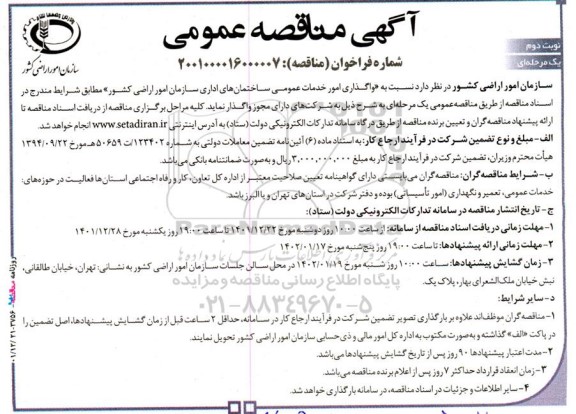 آگهی مناقصه عمومی
نوبت دوم
یک مرحله‌ای
شماره فراخوان (مناقصه): ۲۰۰۱۰۰۰۰۱۶۰۰۰۰۰۷
سازمان امور اراضی کشور
سازمان امور اراضی کشور در نظر دارد نسبت به «واگذاری امور خدمات عمومی ساختمان‌های اداری سازمان امور اراضی کشور» مطابق شرایط مندرج در
اسناد مناقصه از طریق مناقصه عمومی یک مرحله‌ای به شرح ذیل به شرکت‌های دارای مجوز واگذار نماید. کلیه مراحل برگزاری مناقصه از دریافت اسناد مناقصه تا
ارائه پیشنهاد مناقصه‌گران و تعیین برنده مناقصه از طریق درگاه سامانه تدارکات الکترونیکی دولت (ستاد) به آدرس اینترنتی www.setadiran.ir انجام خواهد شد.
الف- مبلغ و نوع تضمین شرکت در فرآیند ارجاع کار: به استناد ماده (۶) آئین‌نامه تضمین معاملات دولتی به شماره ۱۲۳۴۰۲/ت۵۰۶۵۹هـ مورخ ۱۳۹۴/۰۹/۲۲
هیأت محترم وزیران، تضمین شرکت در فرآیند ارجاع کار به مبلغ ۳,۰۰۰,۰۰۰,۰۰۰ ریال و به صورت ضمانتنامه بانکی می‌باشد.
ب- شرایط مناقصه‌گران: مناقصه‌گران می‌بایستی دارای گواهینامه تعیین صلاحیت معتبر از اداره کل تعاون، کار و رفاه اجتماعی استان‌ها فعالیت در حوزه‌های:
خدمات عمومی، تعمیر و نگهداری (امور تأسیساتی) بوده و دفتر شرکت در استان‌های تهران و یا البرز باشد.
ج- تاریخ انتشار مناقصه در سامانه تدارکات الکترونیکی دولت (ستاد):
۱- مهلت زمانی دریافت اسناد مناقصه از سامانه: از ساعت ۱۰:۰۰ روز دوشنبه مورخ ۱۴۰۱/۱۲/۲۲ تا ساعت ۱۹:۰۰ روز یکشنبه مورخ ۱۴۰۱/۱۲/۲۸
۲- مهلت زمانی ارائه پیشنهادها: تا ساعت ۱۹:۰۰ روز پنج‌شنبه مورخ ۱۴۰۲/۰۱/۱۷
۳- زمان گشایش پیشنهادها: ساعت ۱۰:۰۰ روز شنبه مورخ ۱۴۰۲/۰۱/۱۹ در محل سالن جلسات سازمان امور اراضی کشور به نشانی: تهران، خیابان طالقانی،
نبش خیابان ملک‌الشعرای بهار، پلاک یک.
د- سایر شرایط:
۱- مناقصه‌گران موظف‌اند علاوه بر بارگذاری تصویر تضمین شرکت در فرآیند ارجاع کار در سامانه، حداقل ۲ ساعت قبل از زمان گشایش پیشنهادها، اصل تضمین را
در پاکت «الف» گذاشته و به صورت مکتوب به اداره کل امور مالی و ذی‌حسابی سازمان امور اراضی کشور تحویل نمایند.
۲- مدت اعتبار پیشنهادها ۹۰ روز پس از تاریخ گشایش پیشنهادها می‌باشد.
۳- زمان انعقاد قرارداد حداکثر ۷ روز پس از اعلام برنده مناقصه می‌باشد.
۴- سایر اطلاعات و جزئیات در اسناد مناقصه، در سامانه بارگذاری خواهد شد.
پایگاه اطلاع رسانی مناقصه و مزایده
۰۲۱-۸۸۳۴۹۶۷۰-۵